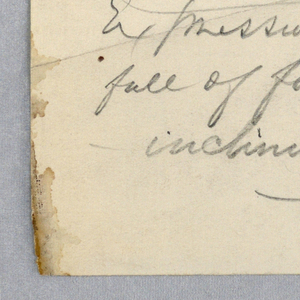 Expressi
full of f
inclin